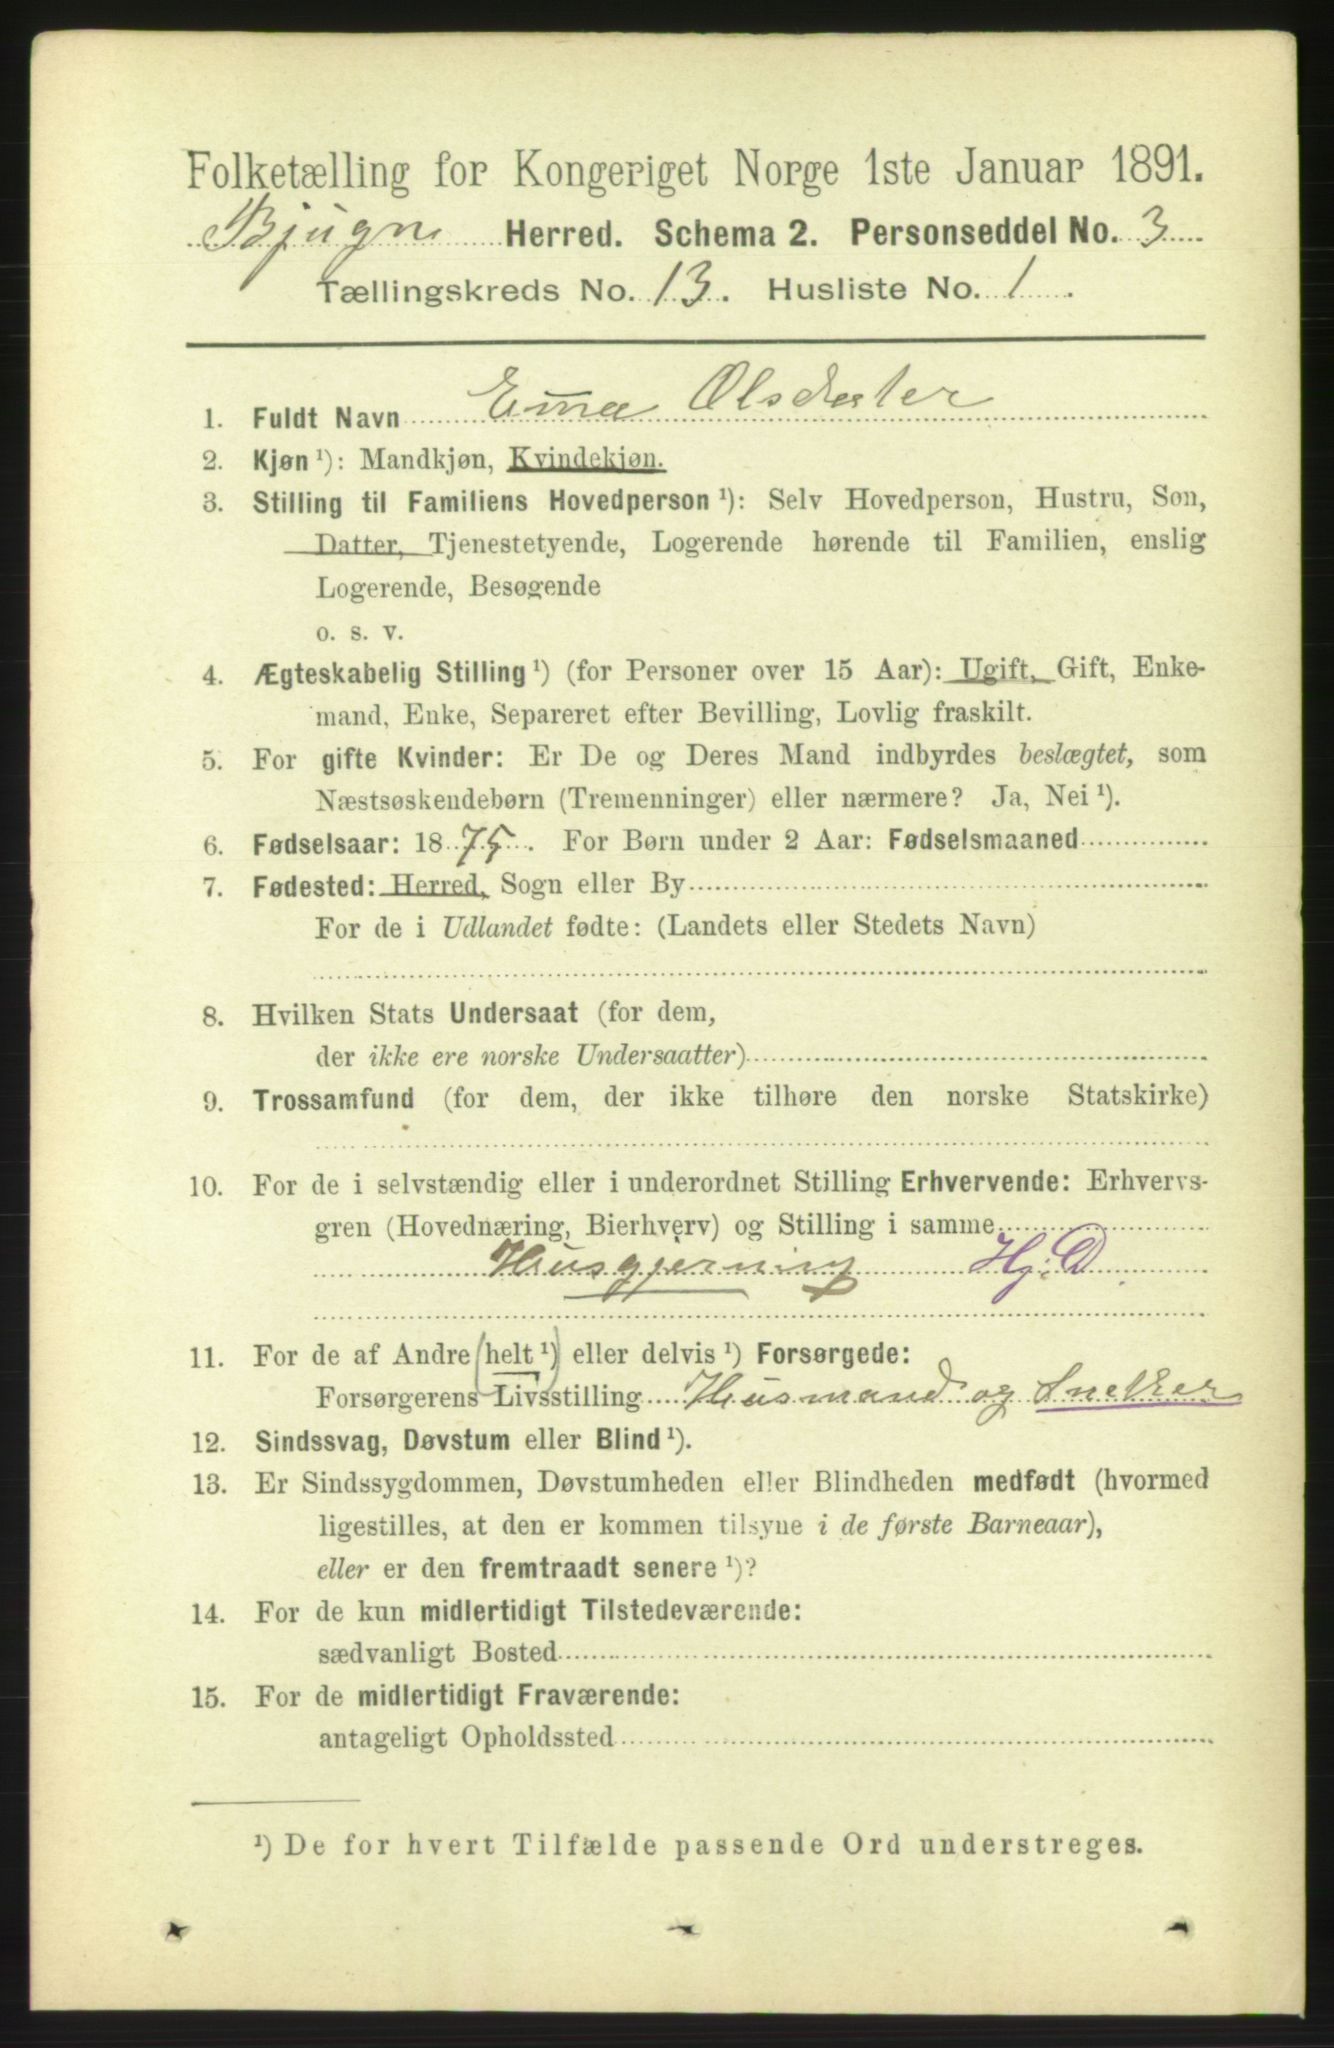 Folketælling for Kongeriget Norge 1ste Januar 1891.
Bjugn Herred. Schema 2. Personseddel No. 3
Tællingskreds No. 13. Husliste No. 1.
1. Fuldt Navn Ema Olsdatter
2. Kjøn ¹): Mandkjøn, Kvindekjøn.
3. Stilling til Familiens Hovedperson ¹): Selv Hovedperson, Hustru, Søn,
Datter, Tjenestetyende, Logerende hørende til Familien, enslig
Logerende, Besøgende
o. s. v.
4. Ægteskabelig Stilling ¹) (for Personer over 15 Aar): Ugift, Gift, Enke-
mand, Enke, Separeret efter Bevilling, Lovlig fraskilt.
5. For gifte Kvinder: Er De og Deres Mand indbyrdes beslægtet, som
Næstsøskendebørn (Tremenninger) eller nærmere? Ja, Nei ¹).
6. Fødselsaar: 1875. For Børn under 2 Aar: Fødselsmaaned
7. Fødested: Herred, Sogn eller By
For de i Udlandet fødte: (Landets eller Stedets Navn)
8. Hvilken Stats Undersaat (for dem,
der ikke ere norske Undersaatter)
9. Trossamfund (for dem, der ikke tilhøre den norske Statskirke)
10. For de i selvstændig eller i underordnet Stilling Erhvervende: Erhvervs-
gren (Hovednæring, Bierhverv) og Stilling i samme
Husgjerning Hg: D
11. For de af Andre (helt ¹) eller delvis ¹) Forsørgede:
Forsørgerens Livsstilling Husmand og Snelker
12. Sindssvag, Døvstum eller Blind ¹).
13. Er Sindssygdommen, Døvstumheden eller Blindheden medfødt (hvormed
ligestilles, at den er kommen tilsyne i de første Barneaar),
eller er den fremtraadt senere ¹)?
14. For de kun midlertidigt Tilstedeværende:
sædvanligt Bosted
15. For de midlertidigt Fraværende:
antageligt Opholdssted
¹) De for hvert Tilfælde passende Ord understreges.